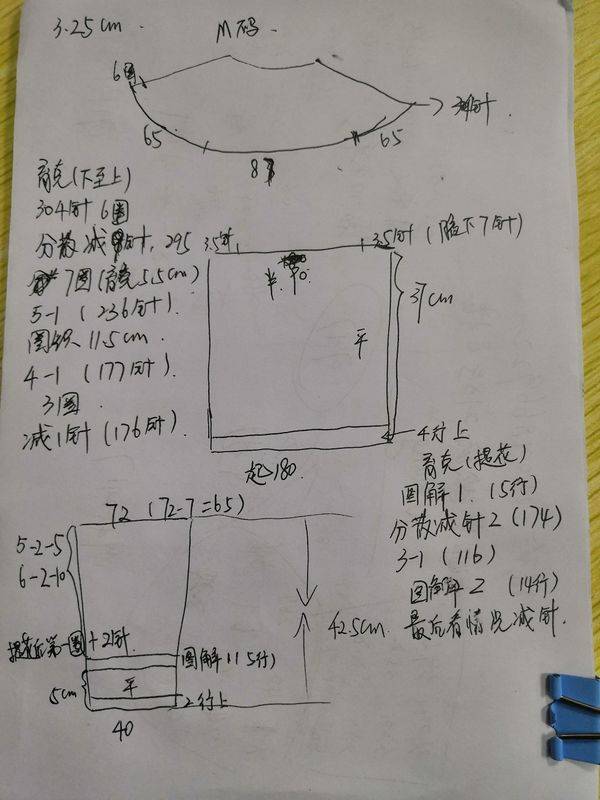 3.25cm.
M码.
6圈
65
65
8
育克(下至上)
304针 6圈
分散减 针, 295
7圈(育克5.5cm)
5-1 (236针).
圈织 11.5cm.
4-1 (177针).
3圈.
减1针 (176针).
3.5针
3.5针 (腋下7针)
37cm
平
4行上
起180.
育克(提花)
图解1. (5行)
分散减针2 (174)
3-1 (116)
图解2 (14行)
最后看情况减针.
72 (72-7=65)
5-2-5
6-2-10
提花后第一圈+2针
图解1(5行)
5cm
平
2行上
40
42.5cm.